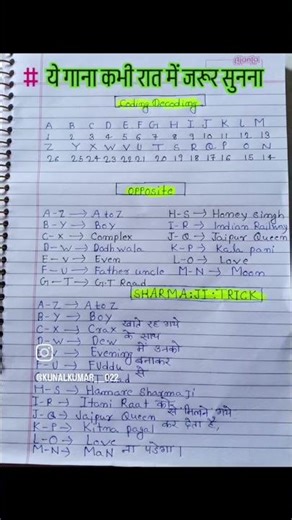 # ये गाना कभी रात में जरूर सुनना
Coding Decoding
A B C D E F G H I J K L M
1 2 3 4 5 6 7 8 9 10 11 12 13
Z Y X W V U T S R Q P O N
26 25 24 23 22 21 20 19 18 17 16 15 14
OPPOSITE
A-Z → A to Z H-S → Honey Singh
B-Y → Boy I-R → Indian Railway
C-X → Complex J-Q → Jaipur Queen
D-W → Dodhwala K-P → Kala pani
E-V → Even L-O → Love
F-U → Father uncle M-N → Moon
G-T → G.T Road
SHARMA:JI:TRICK
A-Z → A to Z
B-Y → Boy
C-X → Crax खाते रह गये
D-W → Dew के साथ
V → Evening में उनको
F-U → FUddu बनाकर
@KUNALKUMARI_022 ad से
H-S → Hamare SharmaJi
I-R → Itani Raat को
J-Q → Jaipur Queen से मिलने गये
K-P → Kitna pagal कर देता है,
L-O → Love
M-N → MaN ना पडेगा।